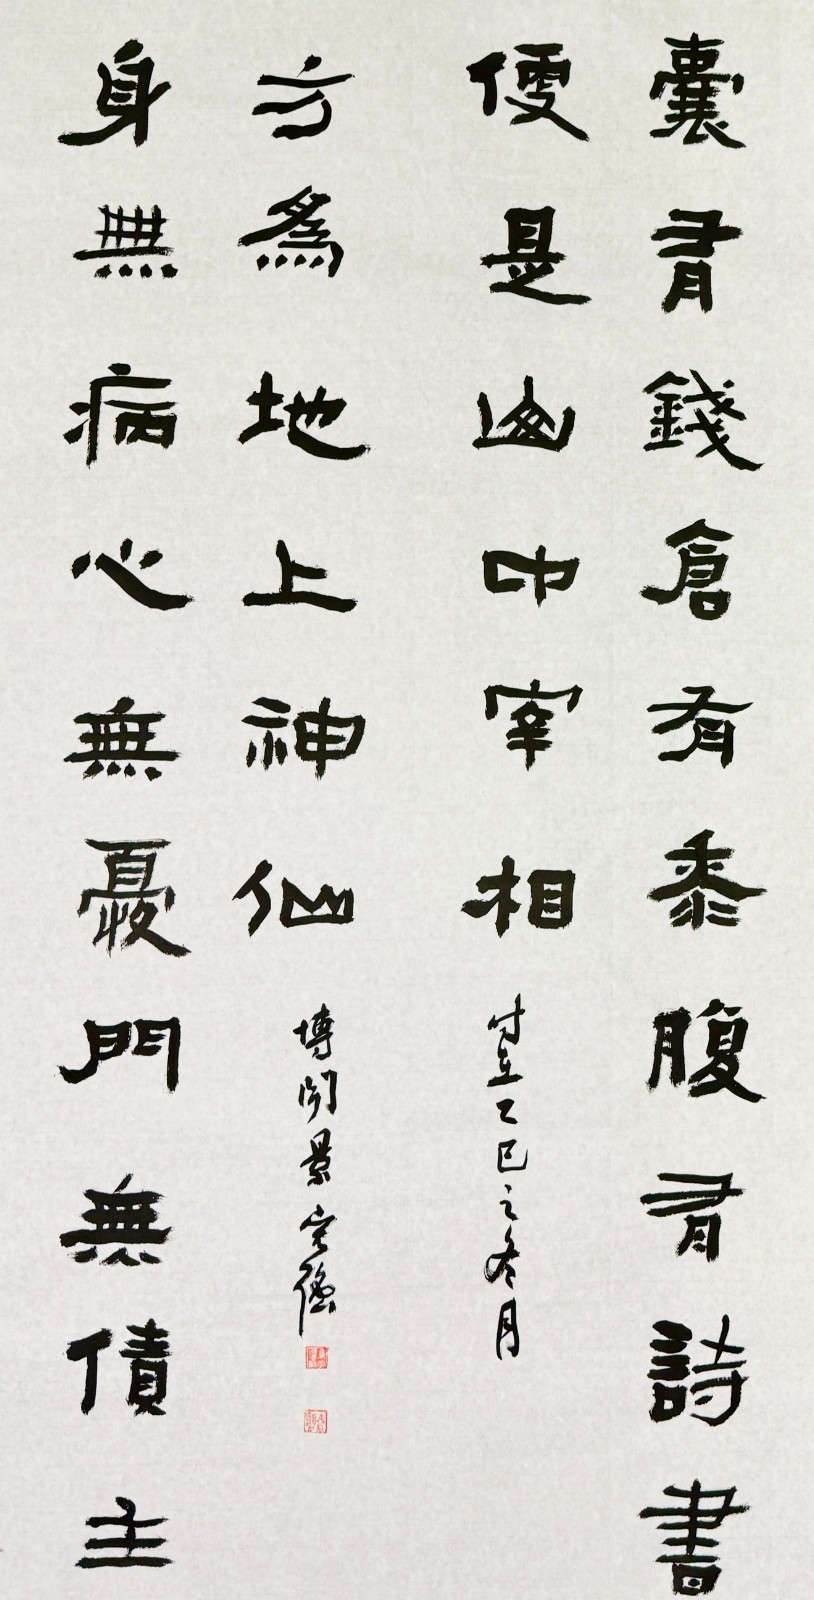 囊有錢倉有黍腹有詩書
便是山中宰相
时在乙巳之冬月
身無病心無憂門無債主
方為地上神仙
博闻景